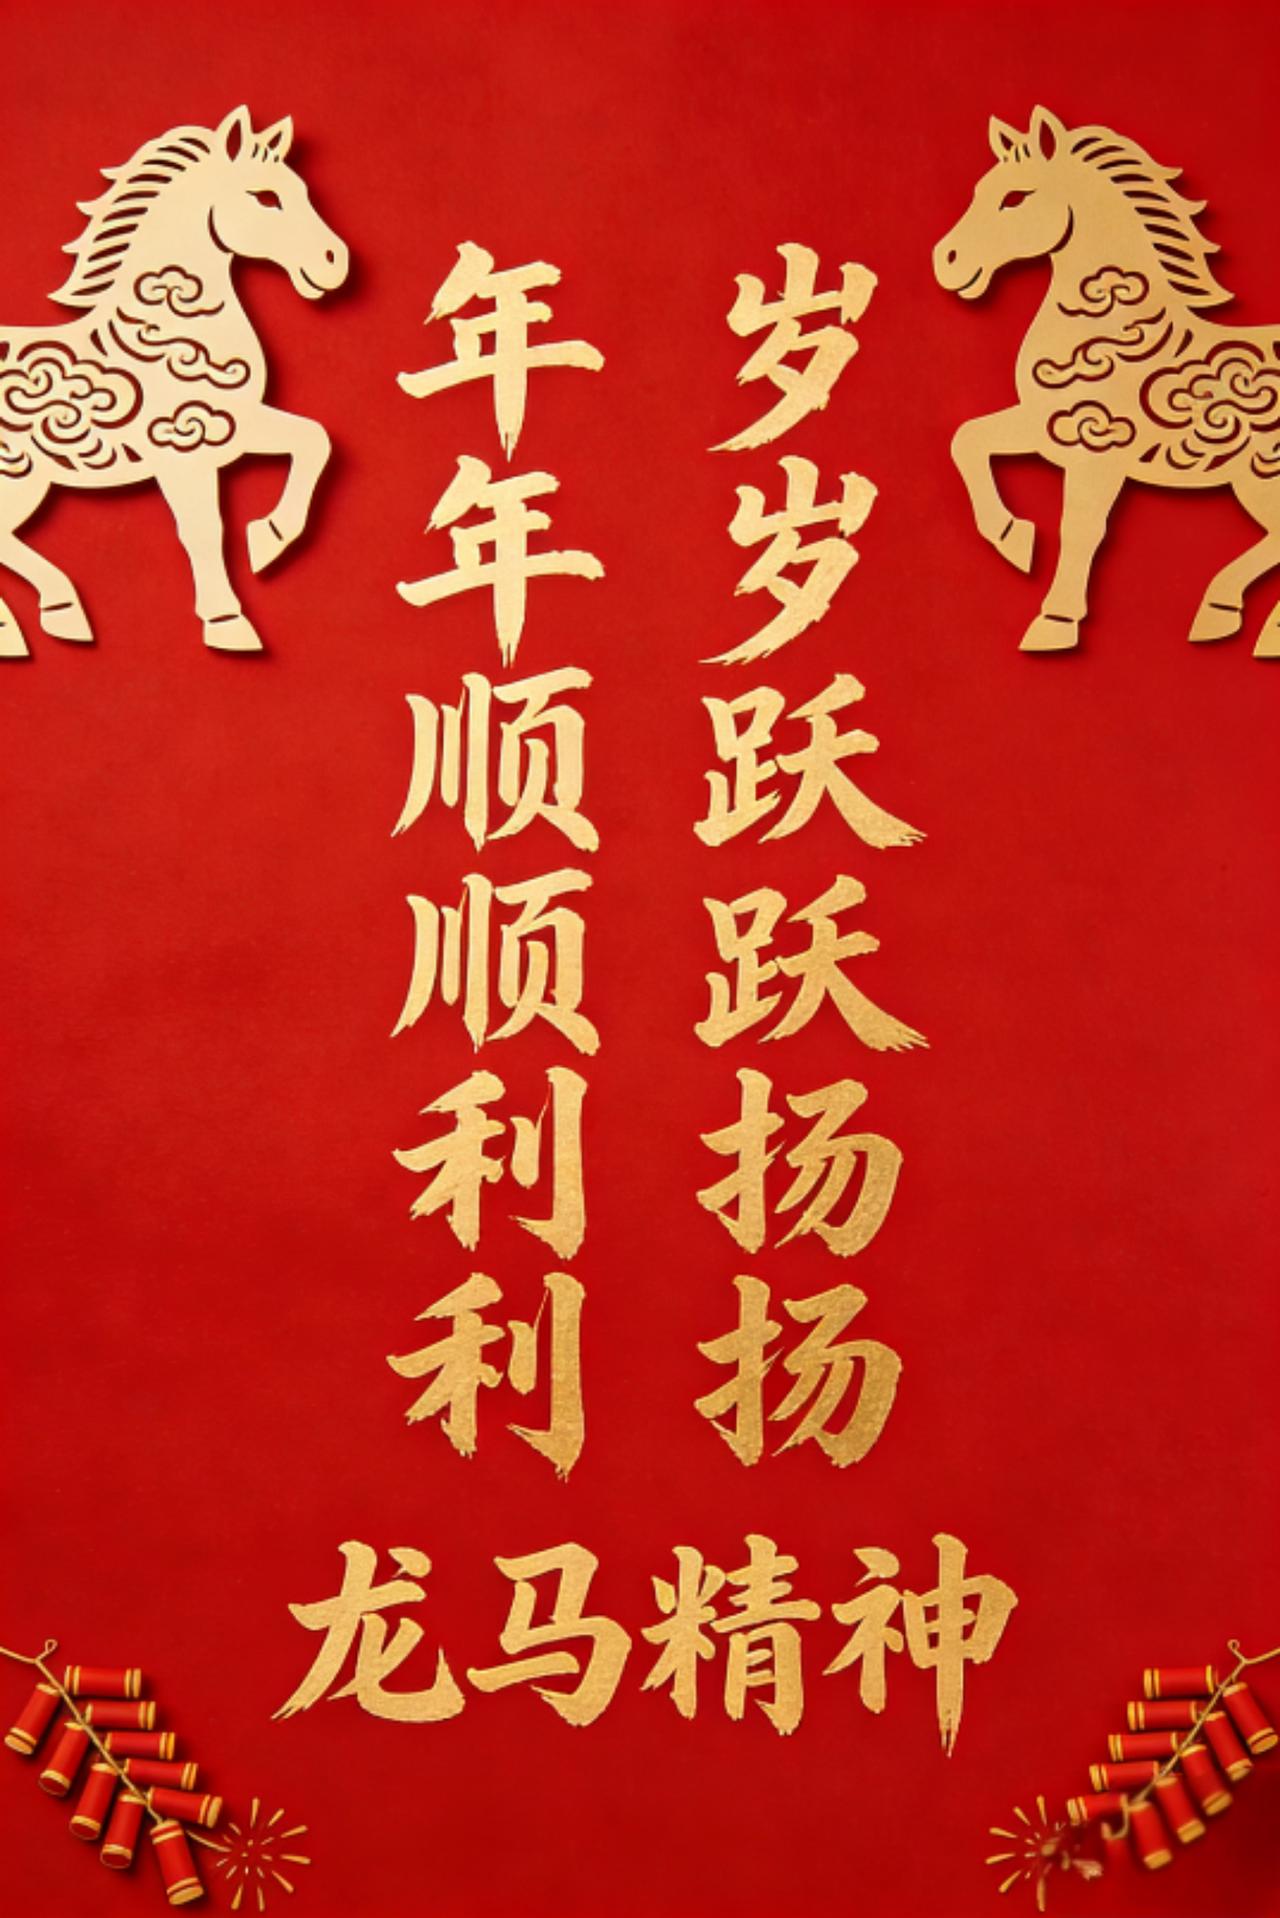 年年顺顺利利
岁岁跃跃扬扬
龙马精神